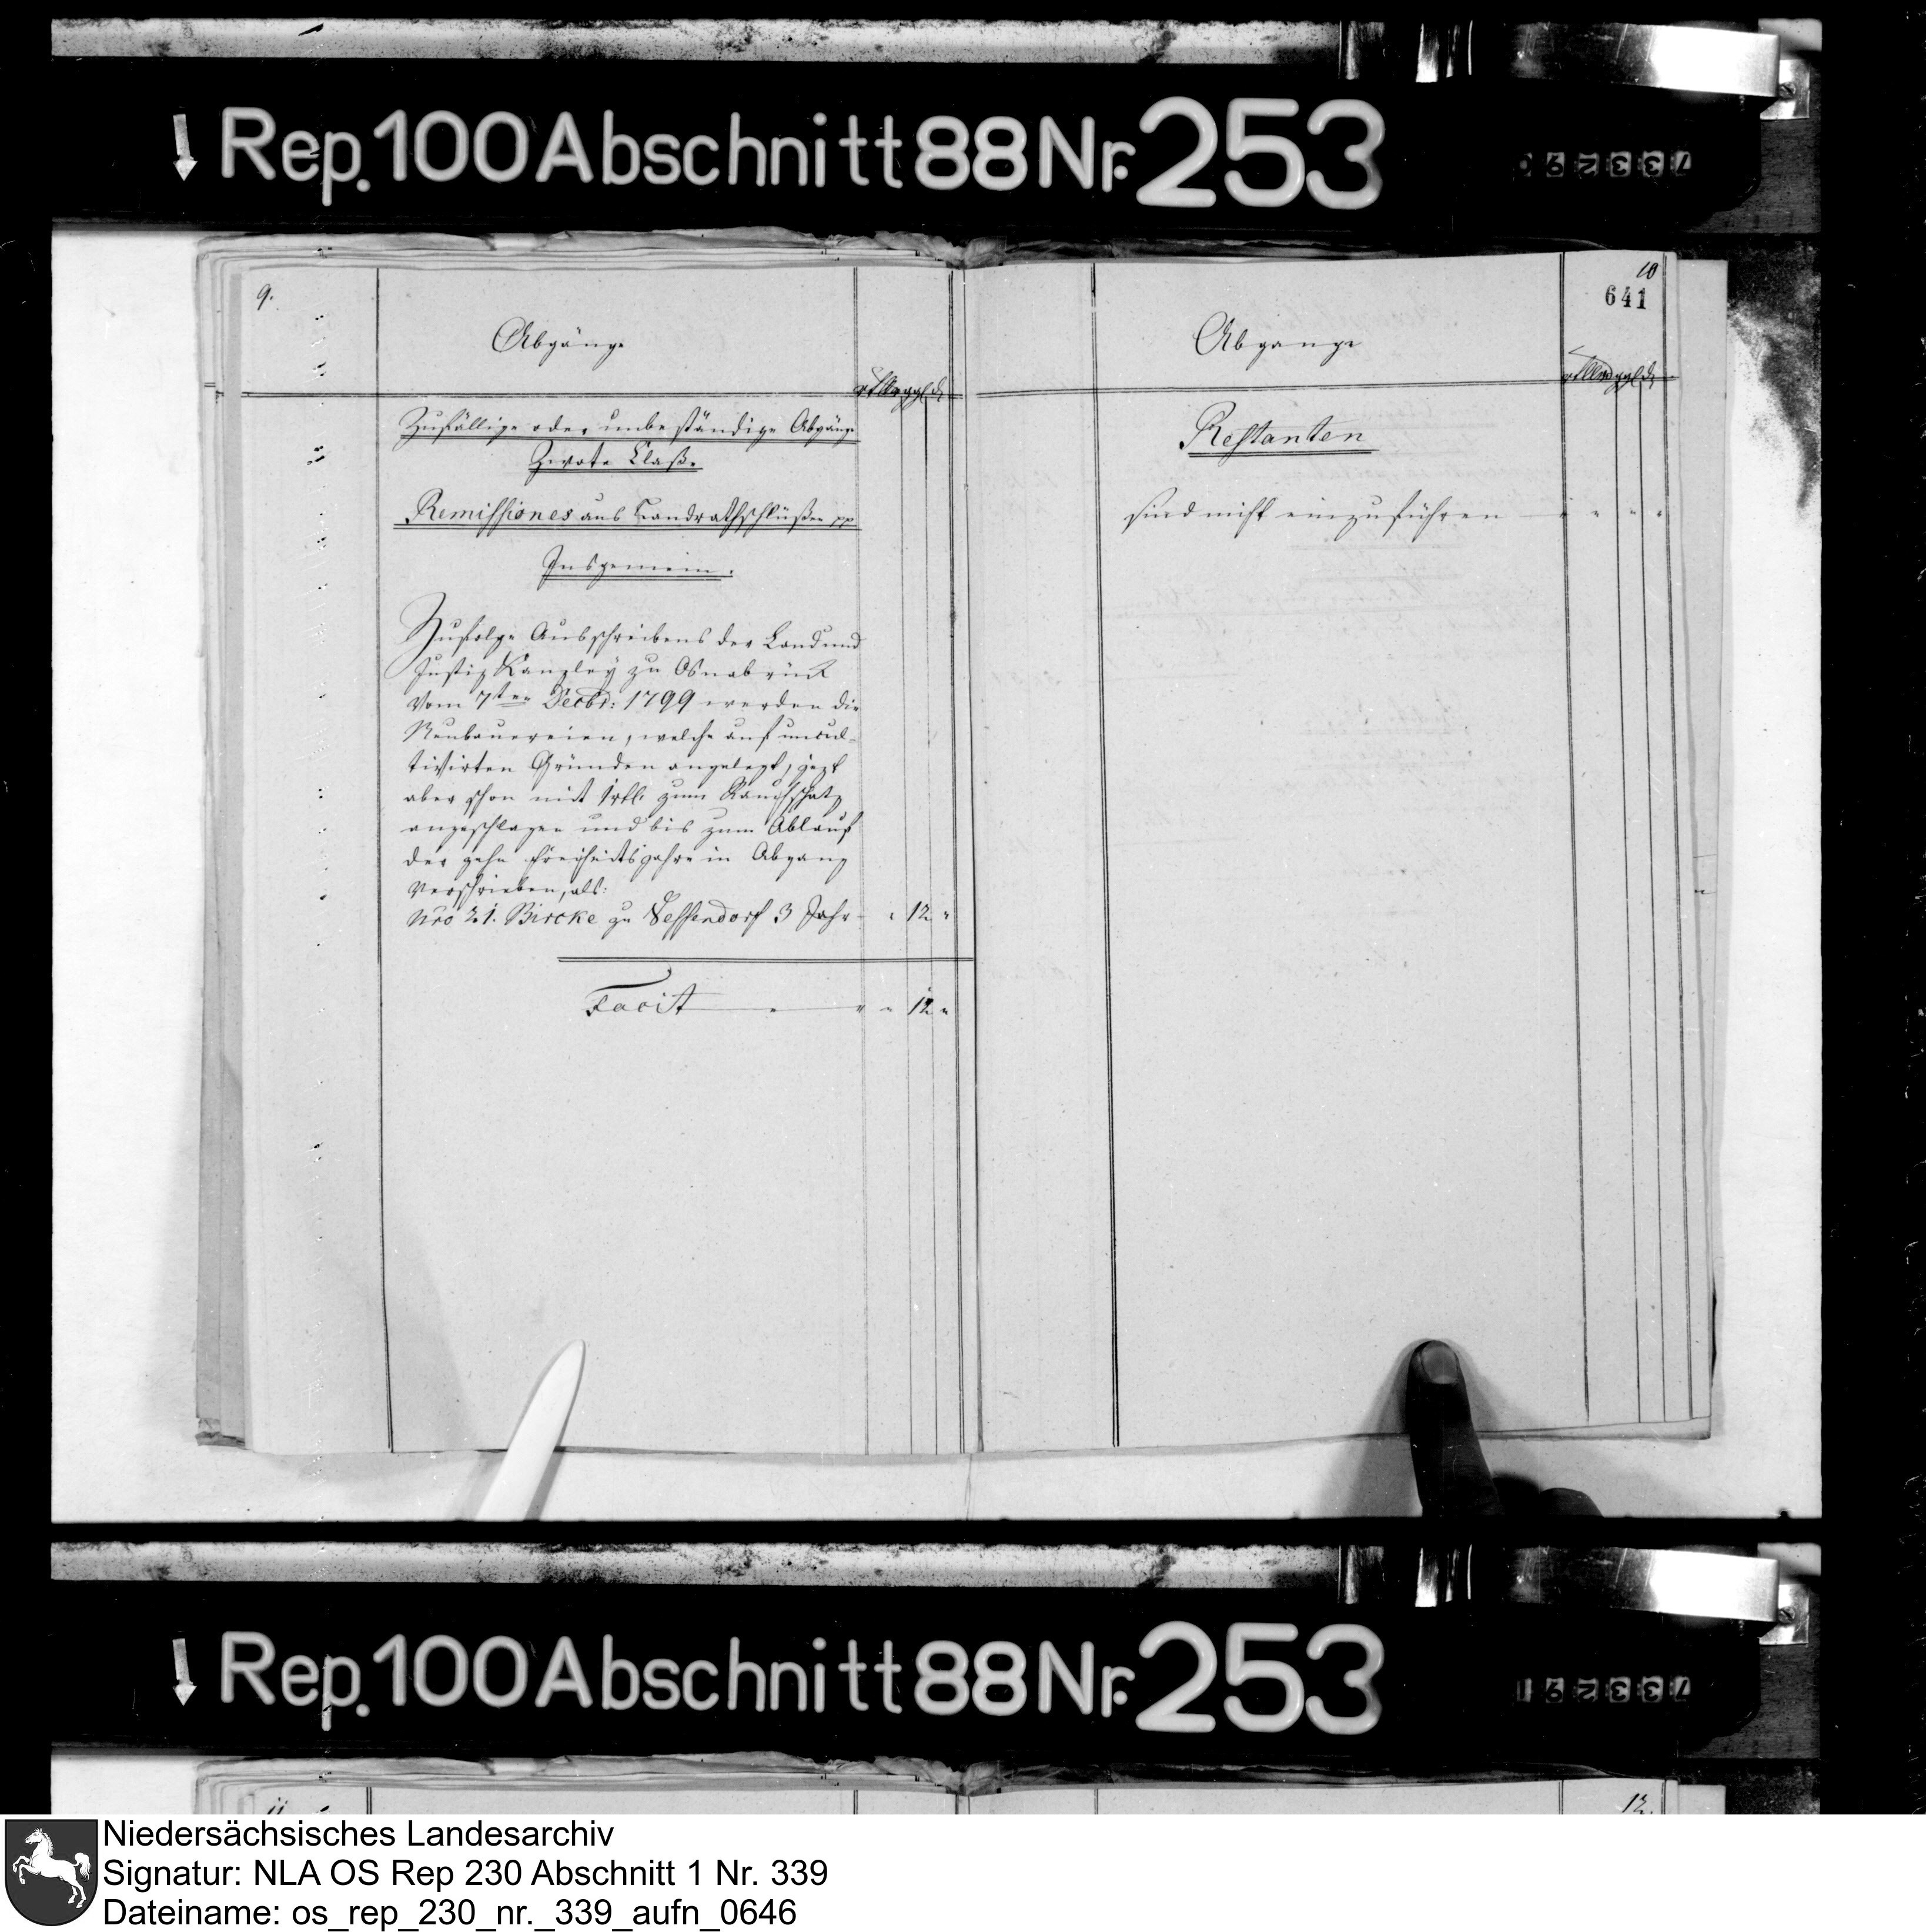 Rep. 100 Abschnitt 88 Nr. 253
733290
9.
Abgänge
rthlr ggl d
Zufällige oder unbeständige Abgänge
Zwote Claße
Remissiones aus Landrathschlüßen pp
Insgemein.
Zufolge Ausschreibens der Land und
Justiz Kanzley zu Osnabrück
vom 7ten Decbr: 1799 werden die
Neubauereien, welche auf uncul-
tivirten Gründen angelegt, jezt
aber schon mit 1rtl. zum Rauchschatz
angeschlagen und bis zum Ablauf
der zehn Freiheitsjahre in Abgang
verschrieben, als:
Nro 21. Bircke zu 3 Jahr - " 12 "
Facit " " 12 "
10
641
Abgange
rthlr ggl d
Restanten
sind nicht einzuführen " " " "
Rep. 100 Abschnitt 88 Nr. 253
733291
11
12.
Niedersächsisches Landesarchiv
Signatur: NLA OS Rep 230 Abschnitt 1 Nr. 339
Dateiname: os_rep_230_nr._339_aufn_0646